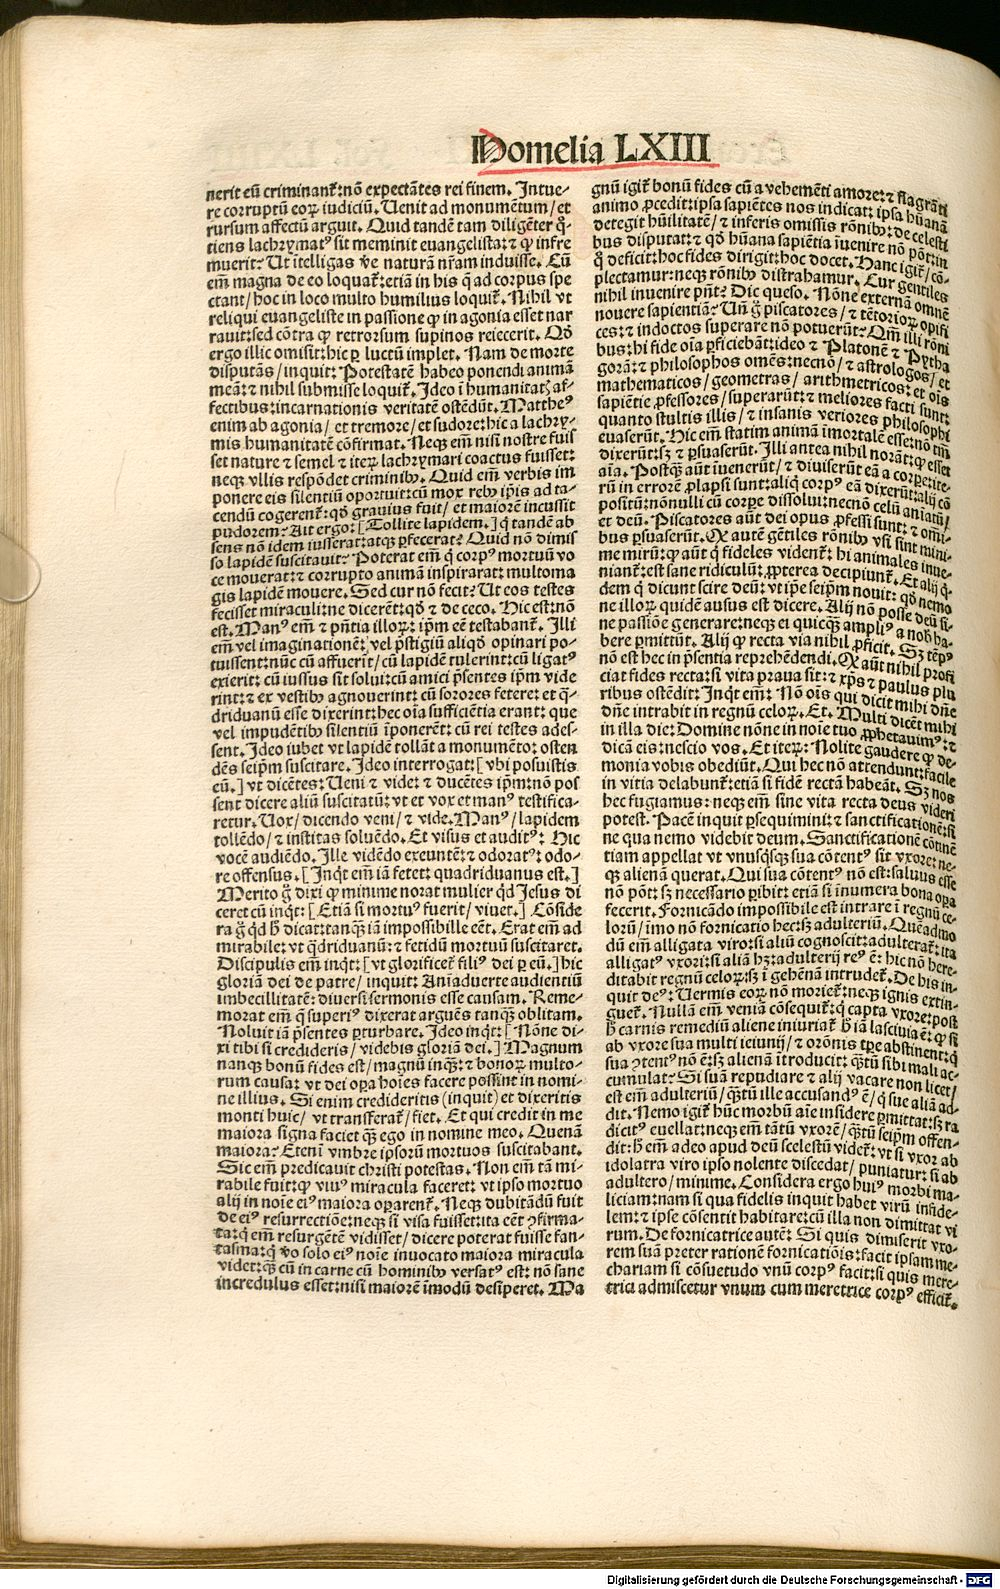 Homelia LXIII
nerit eũ criminant᷑: nõ expectãtes rei finem. Intue-
re corruptũ eoꝝ iudiciũ. Uenit ad monumẽtum/ et
rursum affectũ arguit. Quid tandẽ tam diligẽter q̃-
tiens lachrymatꝰ sit meminit euangelista: ꝛ ꝙ infre
muerit? Ut ĩtelligas ṽe naturã nr̃am induisse. Cũ
em̃ magna de eo loquat᷑: etiã in his q̃ ad corpus spe
ctant/ hoc in loco multo humilius loquit᷑. Nihil vt
reliqui euangeliste in passione ꝙ in agonia esset nar
rauit: sed cõtra ꝙ retrorsum supinos reiecerit. Qđ
ergo illic omisit: hic ꝑ luctũ implet. Nam de morte
disputãs/ inquit: Potestatẽ habeo ponendi animã
meã: ꝛ nihil submisse loquit᷑. Ideo ĩ humanitatꝭ af-
fectibus: incarnationis veritatẽ ostẽdũt. Mattheꝰ
enim ab agonia/ et tremore/ et sudore: hic a lachry-
mis humanitatẽ cõfirmat. Neqꝫ em̃ nisi nostre fuis
set nature ꝛ semel ꝛ iteꝝ lachrymari coactus fuisset:
neqꝫ vllis respõdet criminibꝰ. Quid em̃ verbis im
ponere eis silentiũ oportuit: cũ mox rebꝰ ip̃is ad ta-
cendũ cogerent᷑: qđ grauius fuit/ et maiorẽ incussit
pudorem? Ait ergo: [Tollite lapidem.] q̃ tandẽ ab
sens nõ idem iusserat: atqꝫ ꝑfecerat? Quid nõ dimis
so lapidẽ suscitauit? Poterat em̃ q̃ corpꝰ mortuũ vo
ce mouerat: ꝛ corrupto animã inspirarat: multoma
gis lapidẽ mouere. Sed cur nõ fecit? Ut eos testes
fecisset miraculi: ne dicerẽt: qđ ꝛ de ceco. Hic est: nõ
est. Manꝰ em̃ ꝛ p̃ntia illoꝝ: ip̃m eẽ testabant᷑. Illi
em̃ vel imaginationẽ: vel p̃stigiũ aliqđ opinari po-
tuissent: nũc cũ affuerĩt/ cũ lapidẽ tulerint: cũ ligatꝰ
exierit: cũ iussus sit solui: cũ amici p̃sentes ip̃m vide
rint: ꝛ ex vestibꝰ agnouerint: cũ sorores fetere: et q̃-
driduanũ esse dixerint: hec oĩa sufficiẽtia erant: que
vel impudẽtibꝰ silentiũ ĩponerẽt: cũ rei testes ades-
sent. Ideo iubet vt lapidẽ tollãt a monumẽto: osten
dẽs seip̃m suscitare. Ideo interrogat: [vbi posuistis
eũ.] vt dicẽtes: Ueni ꝛ vide: ꝛ ducẽtes ip̃m: nõ pos
sent dicere aliũ suscitatũ: vt et vox et manꝰ testifica-
retur. Uox/ dicendo veni/ ꝛ vide. Manꝰ/ lapidem
tollẽdo/ ꝛ institas soluẽdo. Et visus et auditꝰ: Hic
vocẽ audiẽdo. Ille vidẽdo exeuntẽ: ꝛ odoratꝰ: odo-
re offensus. [Inq̃t em̃ iã fetet: quadriduanus est.]
Merito g̃ dixi ꝙ minime norat mulier qđ Jesus di
ceret cũ inq̃t: [Etiã si mortuꝰ fuerit/ viuet.] Cõside
ra g̃ qđ h̃ dicat: tanqꝫ iã impossibile eẽt. Erat em̃ ad
mirabile: vt q̃driduanũ: ꝛ fetidũ mortuũ suscitaret.
Discipulis em̃ inq̃t: [vt glorificet᷑ filiꝰ dei ꝑ eũ.] hic
gloriã dei de patre/ inquit: Anĩaduerte audientiũ
imbecillitatẽ: diuersi sermonis esse causam. Reme-
morat em̃ q̃ superiꝰ dixerat arguẽs tanqꝫ oblitam.
Noluit iã p̃sentes ꝑturbare. Ideo inq̃t: [Nõne di-
xi tibi si credideris/ videbis gloriã dei.] Magnum
nanqꝫ bonũ fides est/ magnũ inqꝫ: ꝛ bonoꝝ multo-
rum causa: vt dei oꝑa hoĩes facere possint in nomi-
ne illius. Si enim credideritis (inquit) et dixeritis
monti huic/ vt transferat᷑/ fiet. Et qui credit in me
maiora signa faciet qꝫ ego in nomine meo. Quenã
maiora? Etenĩ vmbre ipsorũ mortuos suscitabant.
Sic em̃ predicauit christi potestas. Non em̃ tã mi-
rabile fuit: ꝙ viuꝰ miracula faceret: vt ipso mortuo
alij in noĩe eiꝰ maiora oꝑarent᷑. Neqꝫ dubitãdũ fuit
de eiꝰ resurrectiõe: neqꝫ si visa fuisset: ita eẽt ꝯfirma-
ta: q̃ em̃ resurgẽtẽ vidisset/ dicere poterat fuisse fan-
tasma: q̃ ṽo solo eiꝰ noĩe inuocato maiora miracula
videt: qꝫ cũ in carne cũ hominibꝰ versatꝰ est: nõ sane
incredulus esset: nisi maiorẽ ĩmodũ desiperet. Ma
gnũ igit᷑ bonũ fides cũ a vehemẽti amore: ꝛ flagrãti
animo ꝓcedit: ipsa sapiẽtes nos indicat: ipsa hũanã
detegit hũilitatẽ/ ꝛ inferis omissis rõnibꝰ: de celesti
bus disputat: ꝛ qđ hũana sapiẽtia ĩuenire nõ põt: in
q̃ deficit: hoc fides dirigit: hoc docet. Hanc igit᷑/ cõ-
plectamur: neqꝫ rõnibꝰ distrahamur. Cur gentiles
nihil inuenire pñt? Dic queso. Nõne externã omnẽ
nouere sapientiã? Uñ g̃ piscatores/ ꝛ tẽtorioꝝ opifi
ces: ꝛ indoctos superare nõ potuerũt? Qm̃ illi rõni
bus: hi fide oĩa ꝑficiebãt: ideo ꝛ Platonẽ ꝛ Pytha
gorã: ꝛ philosophos omẽs: necnõ/ ꝛ astrologos/ et
mathematicos/ geometras/ arithmetricos: et oĩs
sapiẽtie ꝓfessores/ superarũt: ꝛ meliores facti sunt:
quanto stultis illis/ ꝛ insanis veriores philosophi
euaserũt. Hic em̃ statim animã ĩmortalẽ esse: nõ tm̃
dixerũt: sꝫ ꝛ ꝑsuaserũt. Illi antea nihil norãt: ꝙ esset
aĩa. Postqꝫ aũt ĩuenerũt/ ꝛ diuiserũt eã a corꝑe: ite-
rũ in errorẽ ꝓlapsi sunt: aliq̃ corpꝰ eã dixerũt: alij cõ
positũ: nõnulli cũ corꝑe dissolui: necnõ celũ aniatũ/
et deũ. Piscatores aũt dei opus ꝓfessi sunt: ꝛ omi-
bus ꝑsuaserũt. Ex autẽ gẽtiles rõnibꝰ vsi sint mini-
me mirũ: ꝙ aũt q̃ fideles vident᷑: hi animales inue-
niant᷑: est sane ridiculũ: ꝓpterea decipiunt᷑. Et alij q̃-
dem q̃ dicunt scire deũ: vt ip̃e seip̃m nouit: qđ nemo
ne illoꝝ quidẽ ausus est dicere. Alij nõ posse deũ si-
ne passiõe generare: neqꝫ ei quicqꝫ ampliꝰ a nob̃ ha-
bere ꝑmittũt. Alij ꝙ recta via nihil ꝓficit. Sꝫ tẽpꝰ
nõ est hec in p̃sentia reprehẽdendi. Ex aũt nihil profi
ciat fides recta: si vita praua sit: ꝛ xp̃s ꝛ paulus plu
ribus ostẽdit: Inq̃t em̃: Nõ oĩs qui dicit mihi dñe
dñe intrabit in regnũ celoꝝ. Et. Multi dicẽt mihi
in illa die: Domine nõne in noĩe tuo ꝓphetauimꝰ: ꝛ
dicã eis: nescio vos. Et iteꝝ: Nolite gaudere ꝙ de-
monia vobis obediũt. Qui hec nõ attendunt: facile
in vitia delabunt᷑: etiã si fidẽ rectã habeãt. Sꝫ nos
hec fugiamus: neqꝫ em̃ sine vita recta deus videri
potest. Pacẽ inquit ꝑsequimini: ꝛ sanctificationẽ: si
ne qua nemo videbit deum. Sanctificationẽ cõtinẽ
tiam appellat vt vnusq̃sqꝫ sua cõtentꝰ sit vxore: ne-
qꝫ alienã querat. Qui sua cõtentꝰ nõ est: saluus esse
nõ põt: sꝫ necessario ꝑibit: etiã si inumera bona oꝑa
fecerit. Fornicãdo impossibile est intrare ĩ regnũ ce-
lorũ/ imo nõ fornicatio hec: sꝫ adulteriũ. Quẽadmo
dũ em̃ alligata viro: si aliũ cognoscit: adulterat᷑: ita
alligatꝰ vxori: si aliã hꝫ: adulterij reꝰ ẽ: hic nõ here-
ditabit regnũ celoꝝ: sꝫ ĩ gehẽnã intrudet᷑. De his in-
quit deꝰ: Uermis eoꝝ nõ moriet᷑: neqꝫ ignis extin-
guet᷑. Nullã em̃ veniã cõsequit᷑: q̃ capta vxore: post
h̃ carnis remediũ aliene iniuriat᷑ h̃ iã lasciuia ẽ: ꝙ si
ab vxore sua multi ieiunij/ ꝛ orõnis tꝑe abstinent: q̃
sua ꝯtentꝰ nõ ẽ: sꝫ alienã ĩtroducit: q̃tũ sibi mali ac-
cumulat? Si suã repudiare ꝛ alij vacare non licet/
est em̃ adulteriũ/ q̃tũ ille accusandꝰ ẽ/ q̃ sue aliã ad-
dit. Nemo igit᷑ hũc morbũ aĩe insidere ꝑmittat: sꝫ ra
dicitꝰ euellat: neqꝫ em̃ tãtũ vxorẽ/ q̃tũ seip̃m offen-
dit: h̃ em̃ adeo apud deũ scelestũ videt᷑: vt si vxor ab
idolatra viro ipso nolente discedat/ puniatur: si ab
adultero/ minime. Considera ergo huiꝰ morbi ma-
liciam: nam si qua fidelis inquit habet virũ infide-
lem: ꝛ ipse cõsentit habitare: cũ illa non dimittat vi
rum. De fornicatrice autẽ: Si quis dimiserit vxo-
rem suã preter rationẽ fornicatiõis: facit ipsam me-
chariam si cõsuetudo vnũ corpꝰ facit: si quis mere-
trici admiscetur vnum cum meretrice corpꝰ efficit᷑.
Digitalisierung gefördert durch die Deutsche Forschungsgemeinschaft - DFG